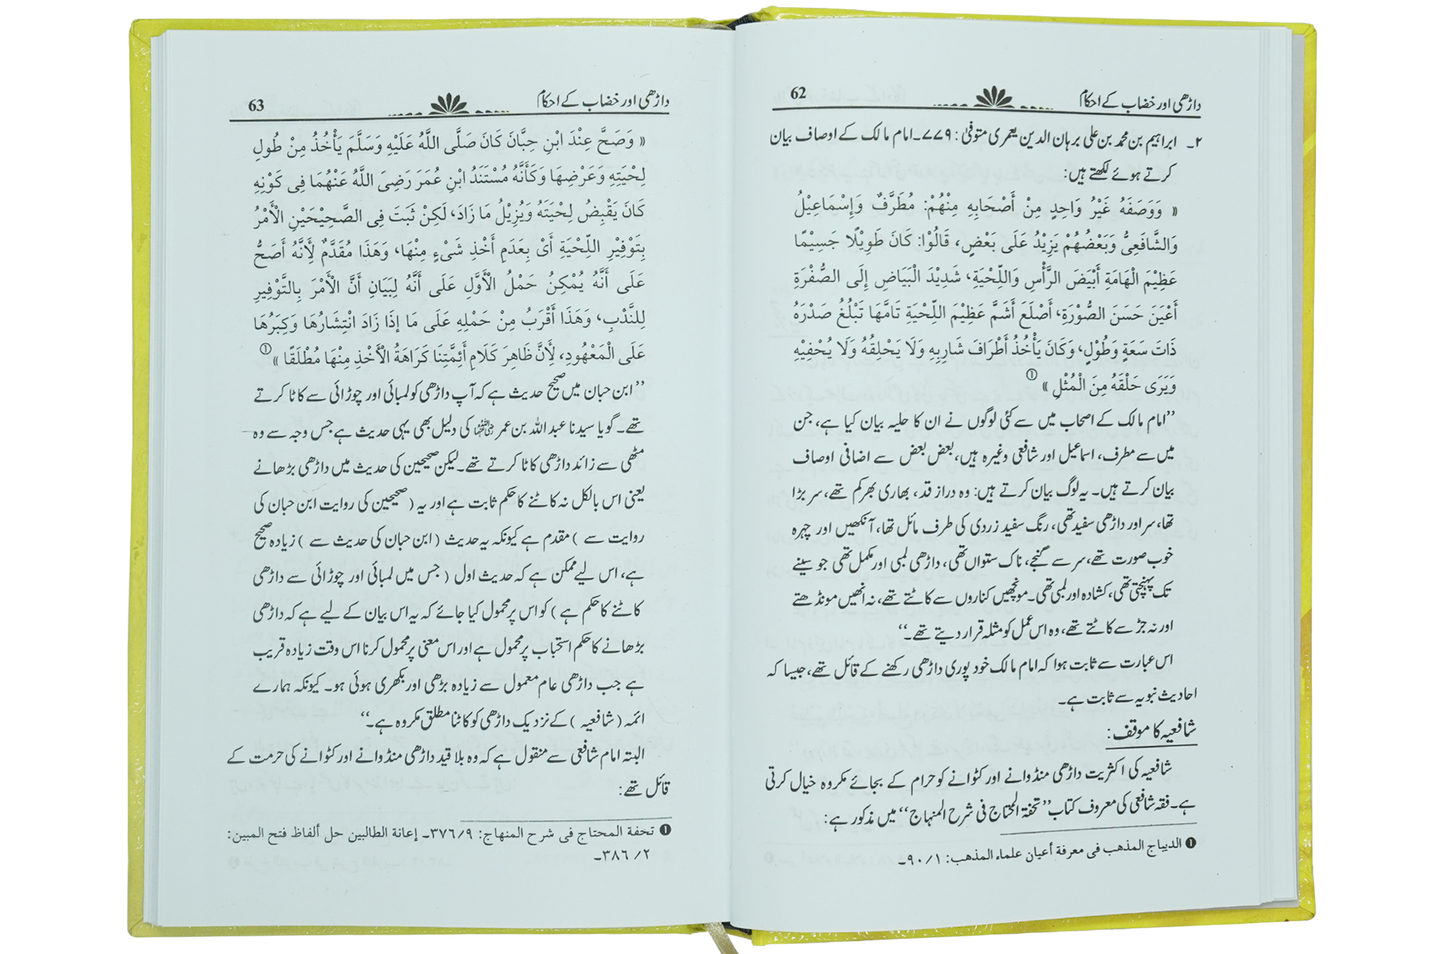 داڑھی اور خضاب کے احکام 62
۲۔ ابراہیم بن محمد بن علی برہان الدین یعمری متوفیٰ: ۷۷۹۔امام مالک کے اوصاف بیان
کرتے ہوئے لکھتے ہیں:
« وَوَصَفَهُ غَيْرُ وَاحِدٍ مِنْ أَصْحَابِهِ مِنْهُمْ: مُطَرَّفٌ وَإِسْمَاعِيْلُ
وَالشَّافَعِيُّ وَبَعْضُهُمْ يَزِيْدُ عَلَى بَعْضٍ، قَالُوْا: كَانَ طَوِيْلًا جَسِيْمًا
عَظِيْمَ الْهَامَةِ أَبْيَضَ الرَّأْسِ وَاللِّحْيَةِ، شَدِيْدَ الْبَيَاضِ إِلَى الصُّفْرَةِ
أَعْيَنَ حَسَنَ الصُّوْرَةِ، أَصْلَعَ أَشَمَّ عَظِيْمَ اللِّحْيَةِ تَامَّهَا تَبْلُغُ صَدْرَهُ
ذَاتَ سَعَةٍ وَطُوْلٍ، وَكَانَ يَأْخُذُ أَطْرَافَ شَارِبِهِ وَلَا يَحْلِقُهُ وَلَا يُحْفِيْهِ
وَيَرَى حَلْقَهُ مِنَ الْمُثْلِ » ①
’’امام مالک کے اصحاب میں سے کئی لوگوں نے ان کا حلیہ بیان کیا ہے، جن
میں سے مطرف، اسماعیل اور شافعی وغیرہ ہیں، بعض بعض سے اضافی اوصاف
بیان کرتے ہیں۔ یہ لوگ بیان کرتے ہیں: وہ دراز قد، بھاری بھرکم تھے، سر بڑا
تھا، سر اور داڑھی سفید تھی، رنگ سفید زردی کی طرف مائل تھا، آنکھیں اور چہرہ
خوب صورت تھے، سر سے گنجے، ناک ستواں تھی، داڑھی لمبی اور مکمل تھی جو سینے
تک پہنچتی تھی، کشادہ اور لمبی تھی۔ مونچھیں کناروں سے کاٹتے تھے، نہ انھیں مونڈھتے
اور نہ جڑ سے کاٹتے تھے، وہ اس عمل کو مثلہ قرار دیتے تھے۔‘‘
اس عبارت سے ثابت ہوا کہ امام مالک خود پوری داڑھی رکھنے کے قائل تھے، جیسا کہ
احادیث نبویہ سے ثابت ہے۔
شافعیہ کا موقف:
شافعیہ کی اکثریت داڑھی منڈوانے اور کٹوانے کو حرام کے بجائے مکروہ خیال کرتی
ہے۔ فقہ شافعی کی معروف کتاب ’’تحفۃ المحتاج فی شرح المنہاج‘‘ میں مذکور ہے:
❶ الديباج المذهب فى معرفة أعيان علماء المذهب: ١/٩٠۔
داڑھی اور خضاب کے احکام 63
« وَصَحَّ عِنْدَ ابْنِ حِبَّانَ كَانَ صَلَّى اللَّهُ عَلَيْهِ وَسَلَّمَ يَأْخُذُ مِنْ طُولِ
لِحْيَتِهِ وَعَرْضِهَا وَكَأَنَّهُ مُسْتَنَدُ ابْنِ عُمَرَ رَضِىَ اللَّهُ عَنْهُمَا فِى كَوْنِهِ
كَانَ يَقْبِضُ لِحْيَتَهُ وَيُزِيْلُ مَا زَادَ، لَكِنْ ثَبَتَ فِى الصَّحِيْحَيْنِ الْأَمْرُ
بِتَوْفِيْرِ اللِّحْيَةِ أَىْ بِعَدَمِ أَخْذِ شَىْءٍ مِنْهَا، وَهَذَا مُقَدَّمٌ لِأَنَّهُ أَصَحُّ
عَلَى أَنَّهُ يُمْكِنُ حَمْلُ الْأَوَّلِ عَلَى أَنَّهُ لِبَيَانِ أَنَّ الْأَمْرَ بِالتَّوْفِيْرِ
لِلنَّدْبِ، وَهَذَا أَقْرَبُ مِنْ حَمْلِهِ عَلَى مَا إِذَا زَادَ انْتِشَارُهَا وَكِبَرُهَا
عَلَى الْمَعْهُودِ، لِأَنَّ ظَاهِرَ كَلَامِ أَئِمَّتِنَا كَرَاهَةُ الْأَخْذِ مِنْهَا مُطْلَقًا » ①
’’ابن حبان میں صحیح حدیث ہے کہ آپ داڑھی کو لمبائی اور چوڑائی سے کاٹا کرتے
تھے۔ گویا سیدنا عبد اللہ بن عمر رضی اللہ عنہما کی دلیل بھی یہی حدیث ہے جس وجہ سے وہ
مٹھی سے زائد داڑھی کاٹا کرتے تھے۔ لیکن صحیحین کی حدیث میں داڑھی بڑھانے
یعنی اس بالکل نہ کاٹنے کا حکم ثابت ہے اور یہ ( صحیحین کی روایت ابن حبان کی
روایت سے ) مقدم ہے کیونکہ یہ حدیث ( ابن حبان کی حدیث سے ) زیادہ صحیح
ہے، اس لیے ممکن ہے کہ حدیث اول ( جس میں لمبائی اور چوڑائی سے داڑھی
کاٹنے کا حکم ہے ) کو اس پر محمول کیا جائے کہ یہ اس بیان کے لیے ہے کہ داڑھی
بڑھانے کا حکم استحباب پر محمول ہے اور اس معنی پر محمول کرنا اس وقت زیادہ قریب
ہے جب داڑھی عام معمول سے زیادہ بڑھی اور بکھری ہوئی ہو۔ کیونکہ ہمارے
ائمہ ( شافعیہ ) کے نزدیک داڑھی کو کاٹنا مطلق مکروہ ہے۔‘‘
البتہ امام شافعی سے منقول ہے کہ وہ بلا قید داڑھی منڈوانے اور کٹوانے کی حرمت کے
قائل تھے:
❶ تحفة المحتاج فى شرح المنهاج: ٩/٣٧٦۔ إعانة الطالبين حل ألفاظ فتح المبين:
٢/ ٣٨٦۔